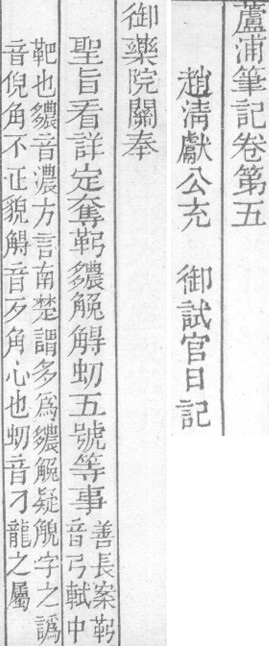 蘆浦筆記卷第五
趙清獻公充 御試官日記
御藥院關奉
聖旨看詳定奪䩑繷虭五號等事
善長案䩑
音弓軾中
靶也繷音濃方言南楚謂多為繷疑觬字之譌
音倪角不正貌音歹角心也虭音刀龍之屬